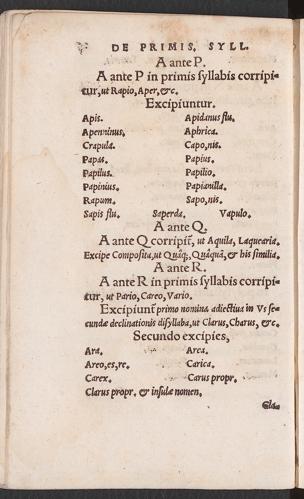 DE PRIMIS, SYLL.
A ante P.
A ante P in primis ſyllabis corripi-
tur, ut Rapio, Aper, &c.
Excipiuntur.
Apis. Apidanus flu.
Apenninus, Aphrica.
Crapula. Capo, nis.
Papas. Papius.
Papilus. Papilio.
Papinius. Papianilla.
Rapum. Sapo, nis.
Sapis flu. Saperda. Vapulo.
A ante Q.
A ante Q corripit̃, ut Aquila, Laquearia.
Excipe Composita, ut Quãq;, Quãquã, & his similia.
A ante R.
A ante R in primis ſyllabis corripi-
tur, ut Pario, Careo, Vario.
Excipiunt̃ primo nomina adiectiua in Vs ſe-
cundæ declinationis diſyllaba, ut Clarus, Charus, &c.
Secundo excipies,
Ara. Area.
Areo, es, re. Carica.
Carex. Carus propr.
Clarus propr. & inſulæ nomen.